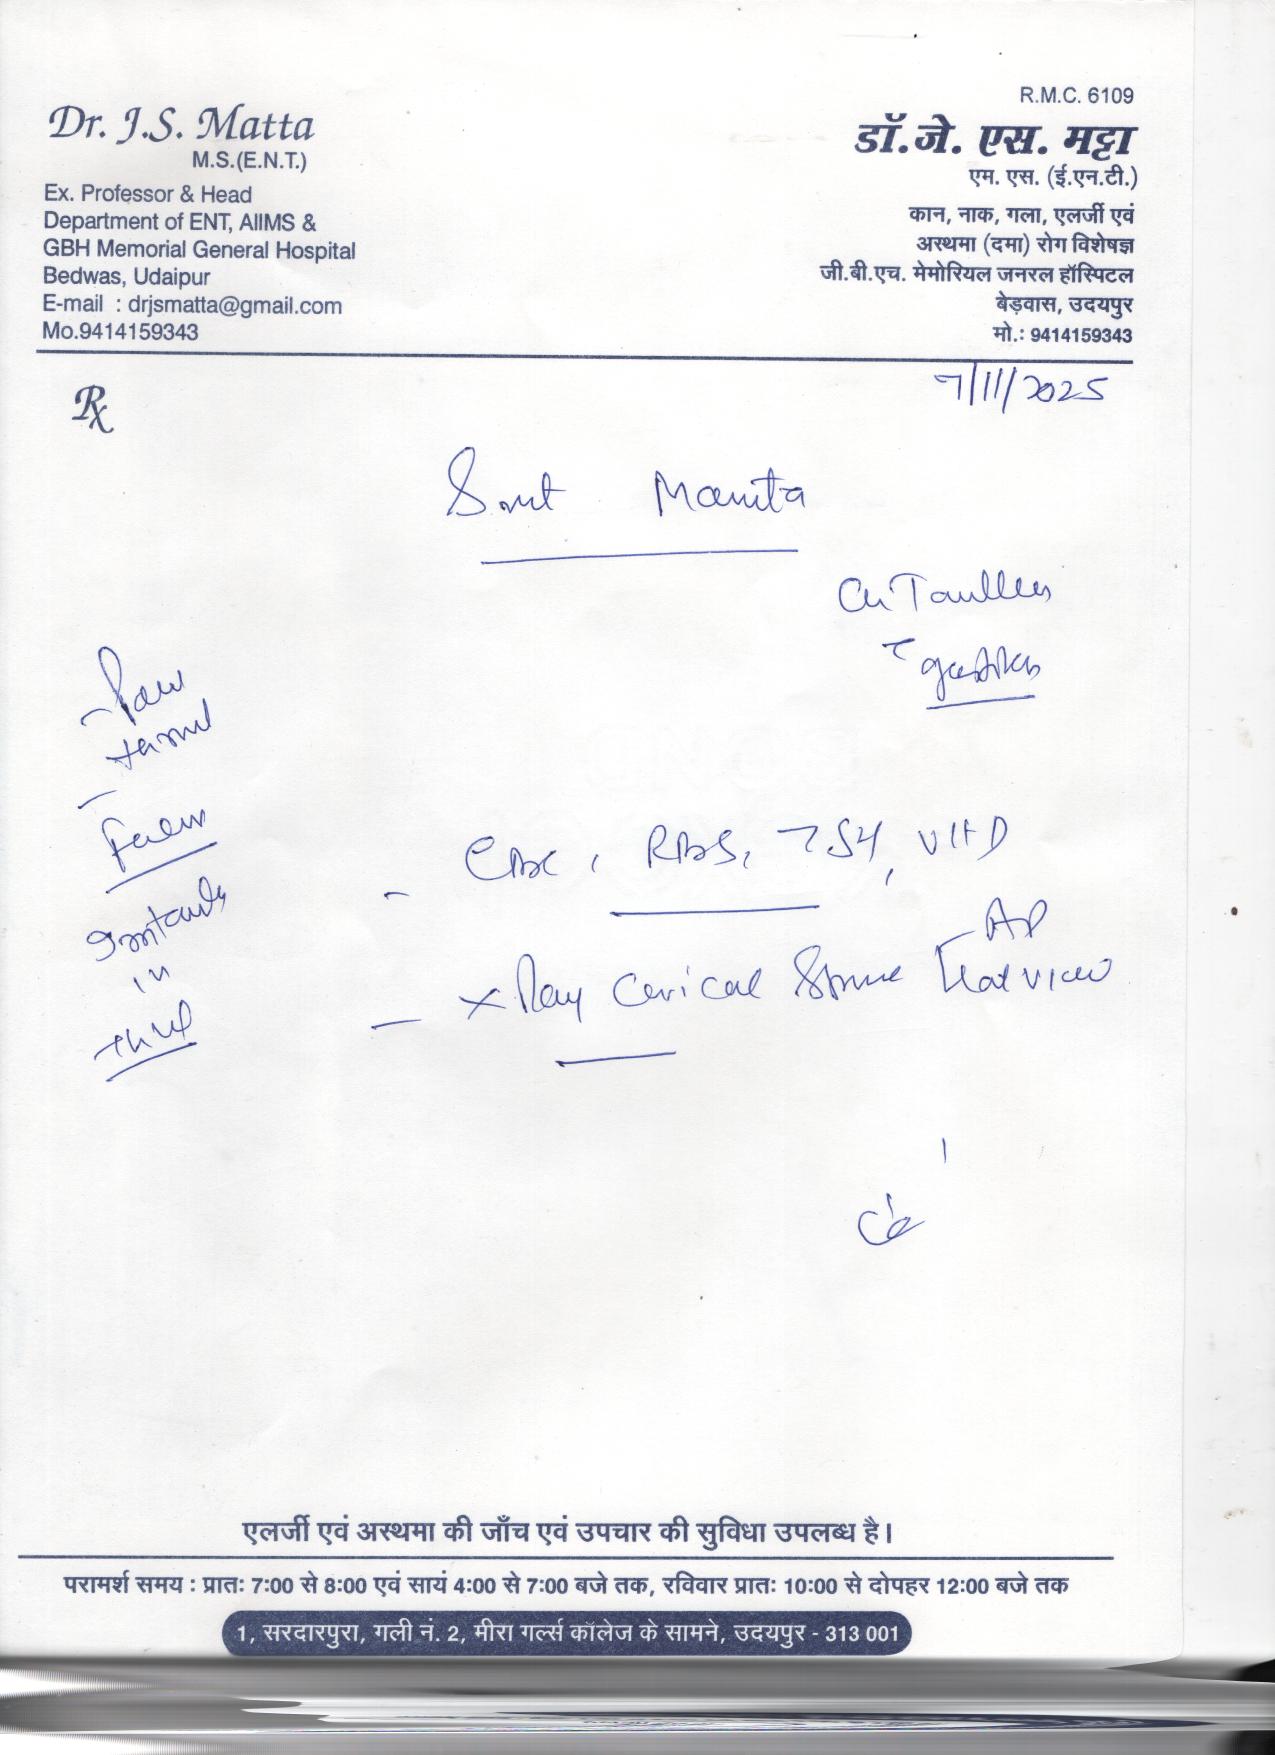 R.M.C. 6109
Dr. J.S. Matta
M.S.(E.N.T.)
Ex. Professor & Head
Department of ENT, AIIMS &
GBH Memorial General Hospital
Bedwas, Udaipur
E-mail : drjsmatta@gmail.com
Mo.9414159343
डॉ.जे. एस. मट्टा
एम. एस. (ई.एन.टी.)
कान, नाक, गला, एलर्जी एवं
अस्थमा (दमा) रोग विशेषज्ञ
जी.बी.एच. मेमोरियल जनरल हॉस्पिटल
बेड़वास, उदयपुर
मो.: 9414159343
7/11/2025
Rx
Smt Mamta
- CBC, RBS, TSH, Vit D
- X Ray Cervical Spine AP
Lat view
एलर्जी एवं अस्थमा की जाँच एवं उपचार की सुविधा उपलब्ध है।
परामर्श समय : प्रातः 7:00 से 8:00 एवं सायं 4:00 से 7:00 बजे तक, रविवार प्रातः 10:00 से दोपहर 12:00 बजे तक
1, सरदारपुरा, गली नं. 2, मीरा गर्ल्स कॉलेज के सामने, उदयपुर - 313 001